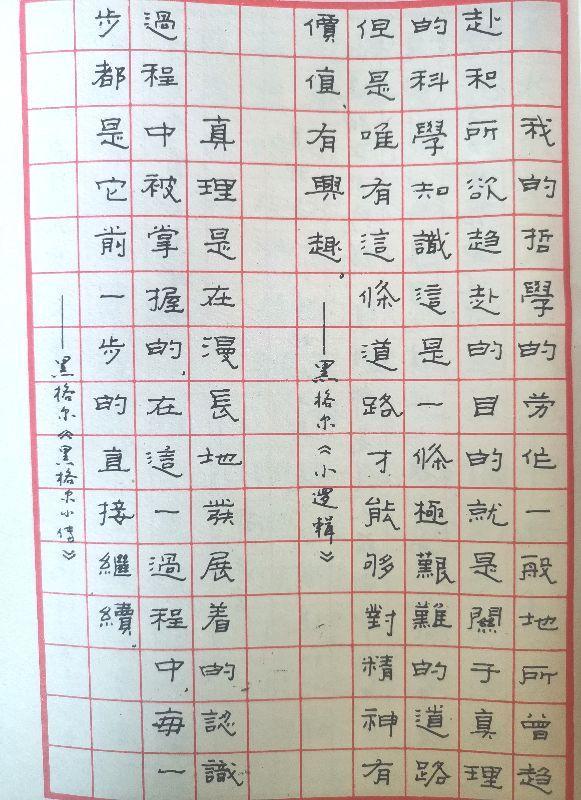 我的哲學的勞作一般地所曾趨
赴和所欲趨赴的目的就是關于真理
的科學知識這是一條極艱難的道路
但是唯有這條道路才能够對精神有
價值,有興趣。——黑格尔《小邏輯》
真理是在漫長地發展着的認識
過程中被掌握的,在這一過程中,每一
步都是它前一步的直接繼續.
——黑格尔《黑格尔小傳》